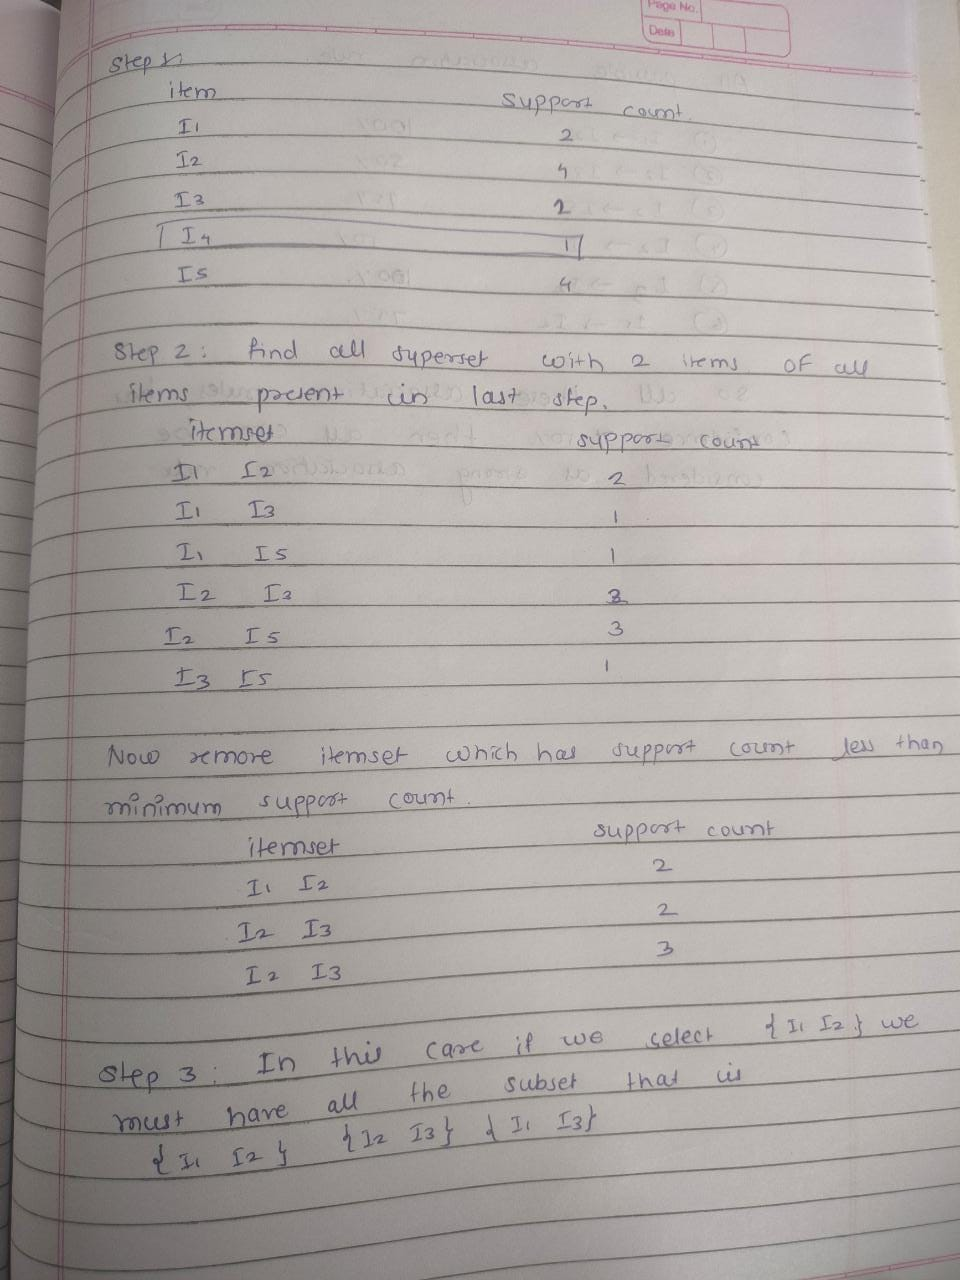 Page No.
Date
Step 1:
item support count.
I1 2
I2 4
I3 2
I4 1
I5 4
Step 2: find all superset with 2 items of all
items present in last step.
itemset support count
I1 I2 2
I1 I3 1
I1 I5 1
I2 I3
I2 I5 3
I3 I5 1
Now remove itemset which has support count less than
minimum support count.
itemset support count
I1 I2 2
I2 I3 2
I2 I3 3
Step 3: In this case if we select { I1 I2 } we
must have all the subset that is
{ I1 I2 } { I2 I3 } { I1 I3 }